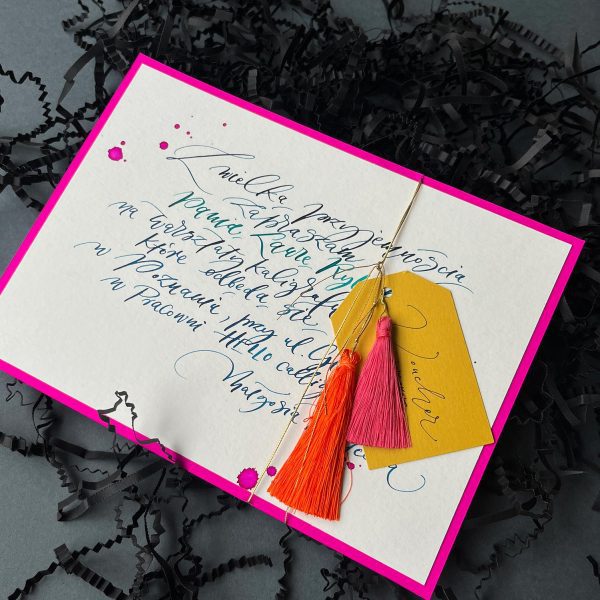 Z wielką przyjemnością
zapraszam
Panią Laurę
na warsztaty kaligrafii
które odbędą się
w Poznaniu, przy ul.
w Pracowni Hello Calli
Małgosia
Voucher